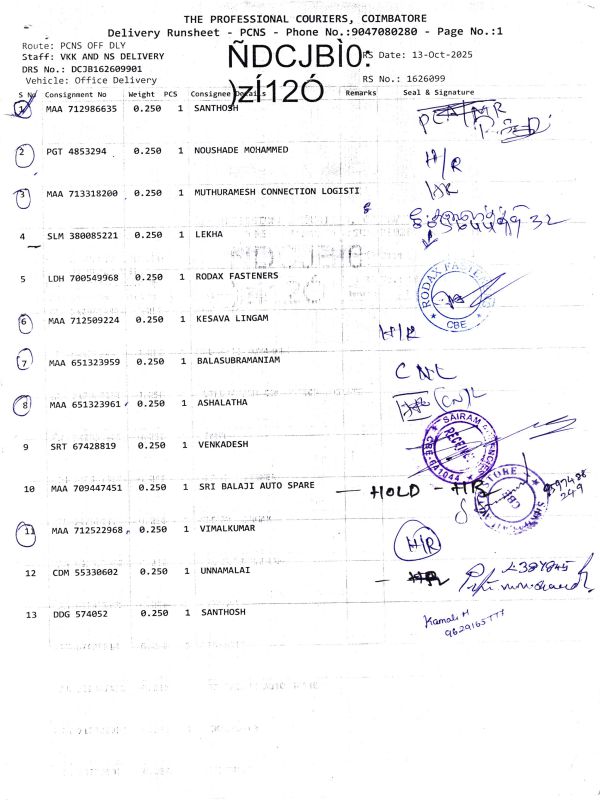 THE PROFESSIONAL COURIERS, COIMBATORE
Delivery Runsheet - PCNS - Phone No.:9047080280 - Page No.:1
Route: PCNS OFF DLY
Staff: VKK AND NS DELIVERY
DRS No.: DCJB162609901
Vehicle: Office Delivery
ÑDCJBÌ0:
)zÍ12Ó
RS Date: 13-Oct-2025
RS No.: 1626099
S No Consignment No Weight PCS Consignee Details Remarks Seal & Signature
1 MAA 712986635 0.250 1 SANTHOSH
2 PGT 4853294 0.250 1 NOUSHADE MOHAMMED H/R
3 MAA 713318200 0.250 1 MUTHURAMESH CONNECTION LOGISTI HR
4 SLM 380085221 0.250 1 LEKHA
5 LDH 700549968 0.250 1 RODAX FASTENERS RODAX FASTENE CBE
6 MAA 712509224 0.250 1 KESAVA LINGAM H/R
7 MAA 651323959 0.250 1 BALASUBRAMANIAM CNL
8 MAA 651323961 0.250 1 ASHALATHA HR (CN)L
9 SRT 67428819 0.250 1 VENKADESH SAIRAM AGENCIES CBE-641044
10 MAA 709447451 0.250 1 SRI BALAJI AUTO SPARE - HOLD - HR
11 MAA 712522968 0.250 1 VIMALKUMAR H/R
12 CDM 55330602 0.250 1 UNNAMALAI - HR
13 DDG 574052 0.250 1 SANTHOSH Kamali M
9629165777